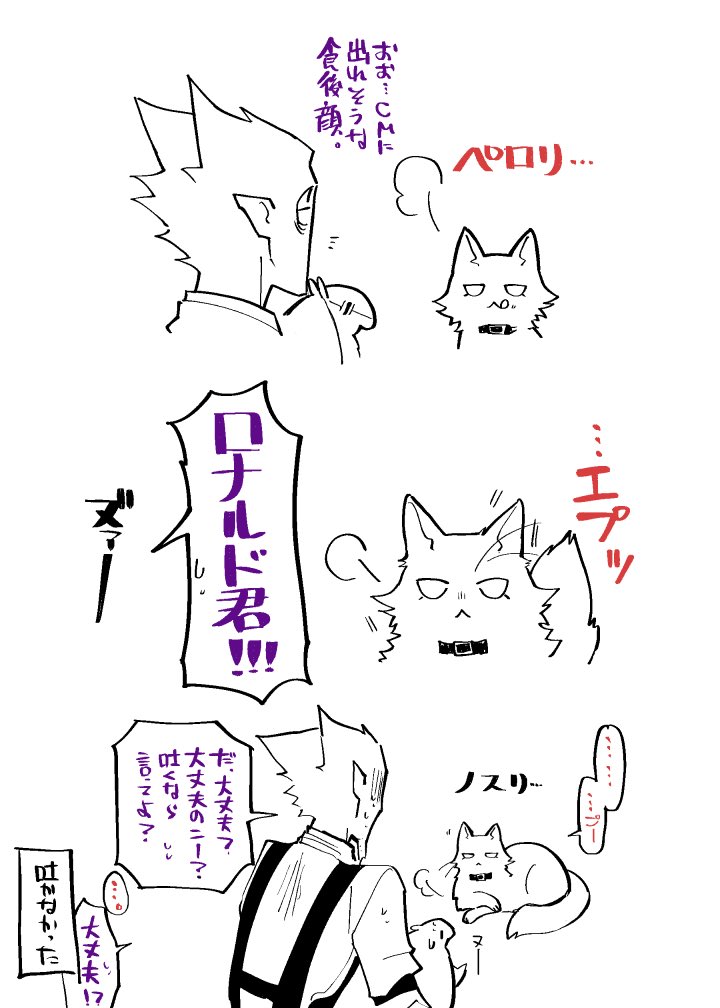 おお…CMに
出れそうな
食後顔。
ペロリ…
…エプッ
ロナルド君!!!
ヌァー
ノスリ…
……
…プー
だ、大丈夫?
大丈夫のニー?
吐くなら
言ってよ?
ヌー
…。
大丈夫!?
吐かなかった